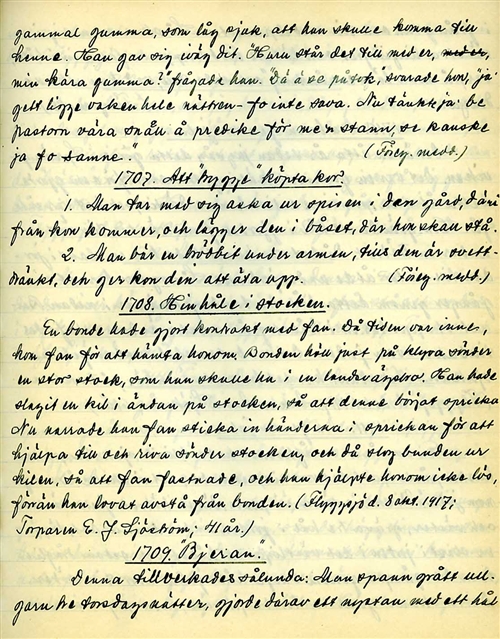 gammal gumma, som låg sjuk, att han skulle komma till
henne. Han gav sig iväg dit. "Huru står det till med er, med er,
min kära gumma?" frågade han. "Då ä se på tok", svarade hon, "ja'
gett ligge vaken hele nättren – fo inte sova. Nu tänkte ja' be
pastorn våra snäll å predike för me'n stann, se kanske
ja fo samne." (Föreg. medd.)
1707. Att bygge" köpta kor.
1. Man tar med sig aska ur spisen i den gård, där i
från kon kommer, och lägger den i båset, där hon skall stå.
2. Man bär en brödbit under armen, tills den är svett-
dränkt, och ger kon den att äta upp. (Föreg. medd.)
1708. Hin håle i stocken.
En bonde hade gjort kontrakt med fan. Då tiden var inne,
kom fan för att hämta honom. Bonden höll just på klyva sönder
en stor stock, som han skulle ha i en landsvägsbro. Han hade
slagit en kil i ändan på stocken, så att denne börjat spricka
Nu narrade han fan sticka in händerna i sprickan för att
hjälpa till och riva sönder stocken, och då slog bonden ur
kilen, så att fan fastnade, och han hjälpte honom icke lös,
förrän han lovat avstå från bonden. (Flyggsjö d. 8 okt. 1917;
Torparen E. J. Sjöström; 41 år.)
1709. "Bjeran".
Denna tillverkades sålunda: Man spann grått ull-
garn tre torsdagsnätter, gjorde därav ett nystan med ett hål